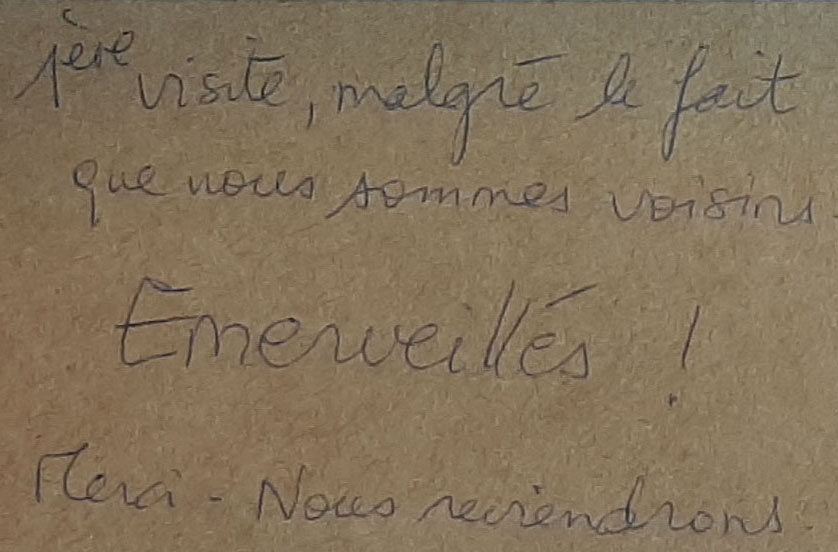 1ère visite, malgré le fait
que nous sommes voisins
Emerveillés !
Merci - Nous reviendrons.